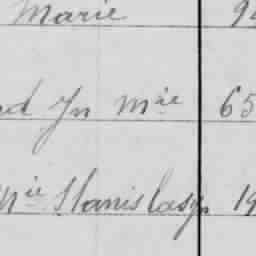 Marie 9
d Jn Mie 65
Mie Stanislas 19